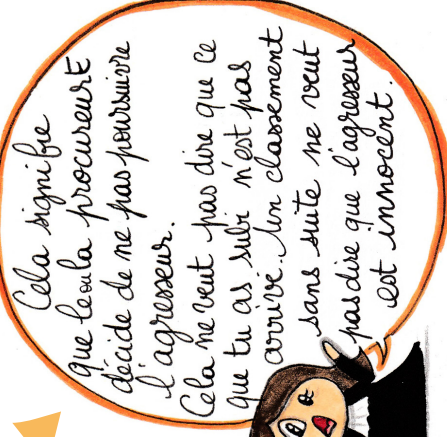 Cela signifie
que le ou la procureurE
décide de ne pas poursuivre
l'agresseur.
Cela ne veut pas dire que ce
que tu as subi n'est pas
arrivé. Un classement
sans suite ne veut
pas dire que l'agresseur
est innocent.